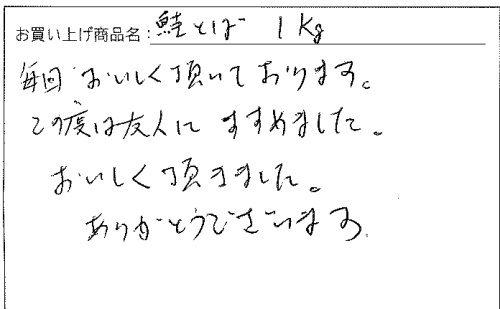 お買い上げ商品名：鮭とば 1Kg
毎回おいしく頂いております。
この度は友人にすすめました。
おいしく頂きました。
ありがとうございます。